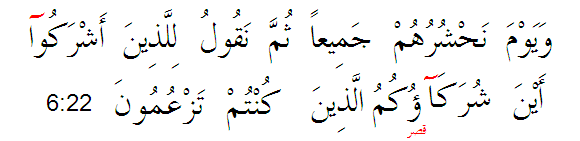 وَيَوْمَ نَحْشُرُهُمْ جَمِيعاً ثُمَّ نَقُولُ لِلَّذِينَ أَشْرَكُوآ
أَيْنَ شُرَكَآؤُكُمُ الَّذِينَ كُنْتُمْ تَزْعُمُونَ 6:22
قصر